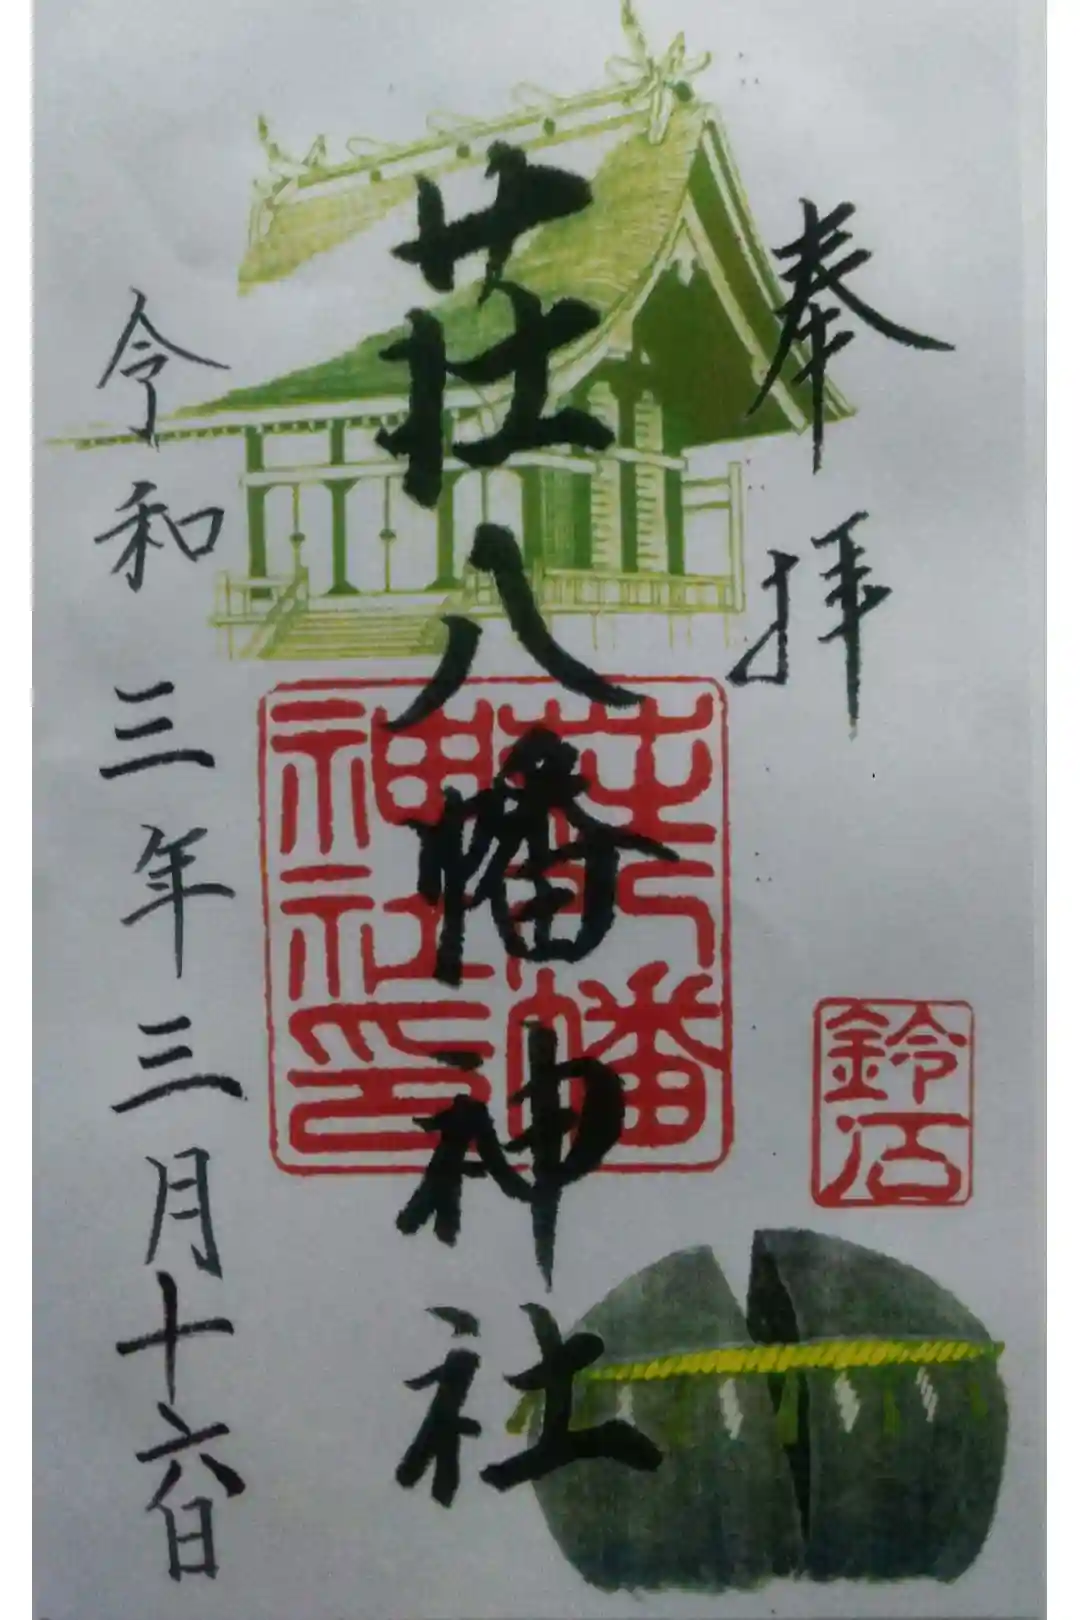 奉拝
荘八幡神社
荘八幡
神社印
鈴石
令和三年三月十六日